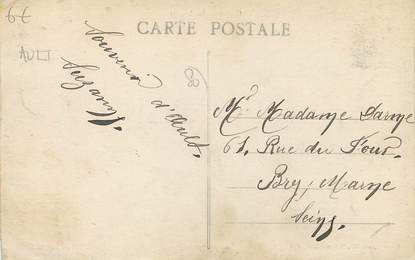 6€
AULT
CARTE POSTALE
Souvenir d'Ault.
Suzanne.
60
Mr Madame Darme
61. Rue du Four.
Bry, Marne
Seine.